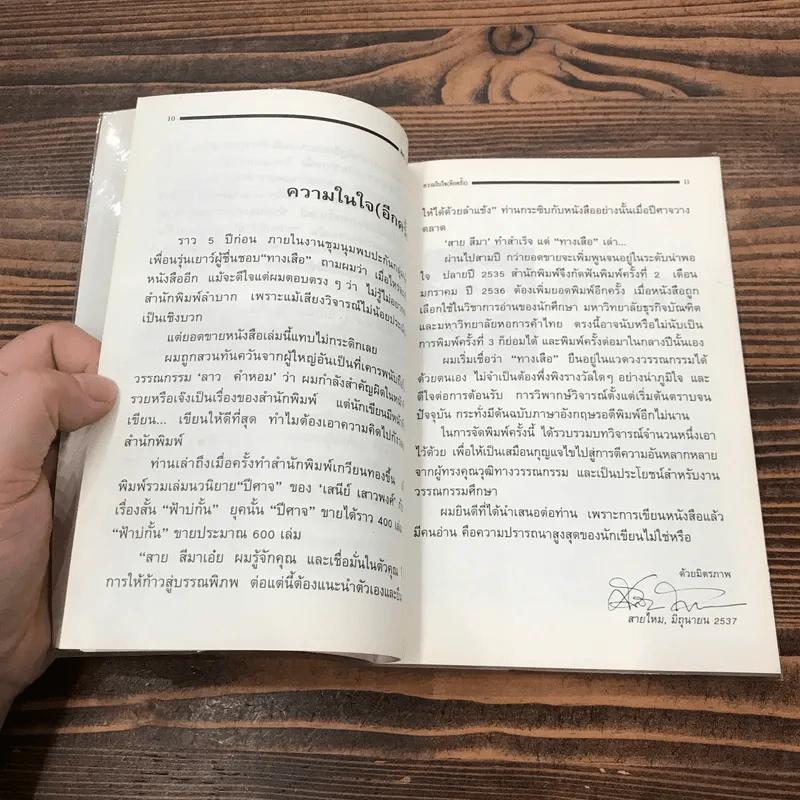 10
ความในใจ(อีกครั้
ราว 5 ปีก่อน ภายในงานชุมนุมพบปะกันกลุ่ม
เพื่อนรุ่นเยาว์ผู้ชื่นชอบ“ทางเสือ” ถามผมว่า เมื่อไหร่
หนังสืออีก แม้จะดีใจแต่ผมตอบตรง ๆ ว่า ไม่รู้ไม่อยาก
สำนักพิมพ์ลำบาก เพราะแม้เสียงวิจารณ์ไม่น้อย
เป็นเชิงบวก
แต่ยอดขายหนังสือเล่มนี้แทบไม่กระดิกเลย
ผมถูกสวนทันควันจากผู้ใหญ่อันเป็นที่เคารพนับถือ
วรรณกรรม ‘ลาว คำหอม’ ว่า ผมกำลังสำคัญผิดในหน้า
รวยหรือเจ๊งเป็นเรื่องของสำนักพิมพ์ แต่นักเขียนมีหน้า
เขียน... เขียนให้ดีที่สุด ทำไมต้องเอาความคิดไป
สำนักพิมพ์
ท่านเล่าถึงเมื่อครั้งทำสำนักพิมพ์เกวียนทองขึ้น
พิมพ์รวมเล่มนวนิยาย“ปีศาจ” ของ ‘เสนีย์ เสาวพงศ์’
เรื่องสั้น “ฟ้าบ่กั้น” ยุคนั้น “ปีศาจ” ขายได้ราว 400 เล่ม
“ฟ้าบ่กั้น” ขายประมาณ 600 เล่ม
“สาย สีมาเอ๋ย ผมรู้จักคุณ และเชื่อมั่นในตัวคุณ
การให้ก้าวสู่บรรณพิภพ ต่อแต่นี้ต้องแนะนำตัวเองและ
ความในใจ(อีกครั้ง)
11
ให้ได้ด้วยลำแข้ง” ท่านกระซิบกับหนังสืออย่างนั้นเมื่อปีศาจวาง
ตลาด
‘สาย สีมา’ ทำสำเร็จ แต่ “ทางเสือ” เล่า...
ผ่านไปสามปี กว่ายอดขายจะเพิ่มพูนจนอยู่ในระดับน่าพอ
ใจ ปลายปี 2535 สำนักพิมพ์จึงกัดฟันพิมพ์ครั้งที่ 2 เดือน
มกราคม ปี 2536 ต้องเพิ่มยอดพิมพ์อีกครั้ง เมื่อหนังสือถูก
เลือกใช้ในวิชาการอ่านของนักศึกษา มหาวิทยาลัยธุรกิจบัณฑิต
และมหาวิทยาลัยหอการค้าไทย ตรงนี้อาจนับหรือไม่นับเป็น
การพิมพ์ครั้งที่ 3 ก็ย่อมได้ และพิมพ์ครั้งต่อมาในกลางปีนั้นเอง
ผมเริ่มเชื่อว่า “ทางเสือ” ยืนอยู่ในแวดวงวรรณกรรมได้
ด้วยตนเอง ไม่จำเป็นต้องพึ่งพิงรางวัลใดๆ อย่างน่าภูมิใจ และ
ดีใจต่อการต้อนรับ การวิพากษ์วิจารณ์ตั้งแต่เริ่มต้นตราบจน
ปัจจุบัน กระทั่งมีต้นฉบับภาษาอังกฤษรอตีพิมพ์อีกไม่นาน
ในการจัดพิมพ์ครั้งนี้ ได้รวบรวมบทวิจารณ์จำนวนหนึ่งเอา
ไว้ด้วย เพื่อให้เป็นเสมือนกุญแจไขไปสู่การตีความอันหลากหลาย
จากผู้ทรงคุณวุฒิทางวรรณกรรม และเป็นประโยชน์สำหรับงาน
วรรณกรรมศึกษา
ผมยินดีที่ได้นำเสนอต่อท่าน เพราะการเขียนหนังสือแล้ว
มีคนอ่าน คือความปรารถนาสูงสุดของนักเขียนไม่ใช่หรือ
ด้วยมิตรภาพ
สายไหม, มิถุนายน 2537